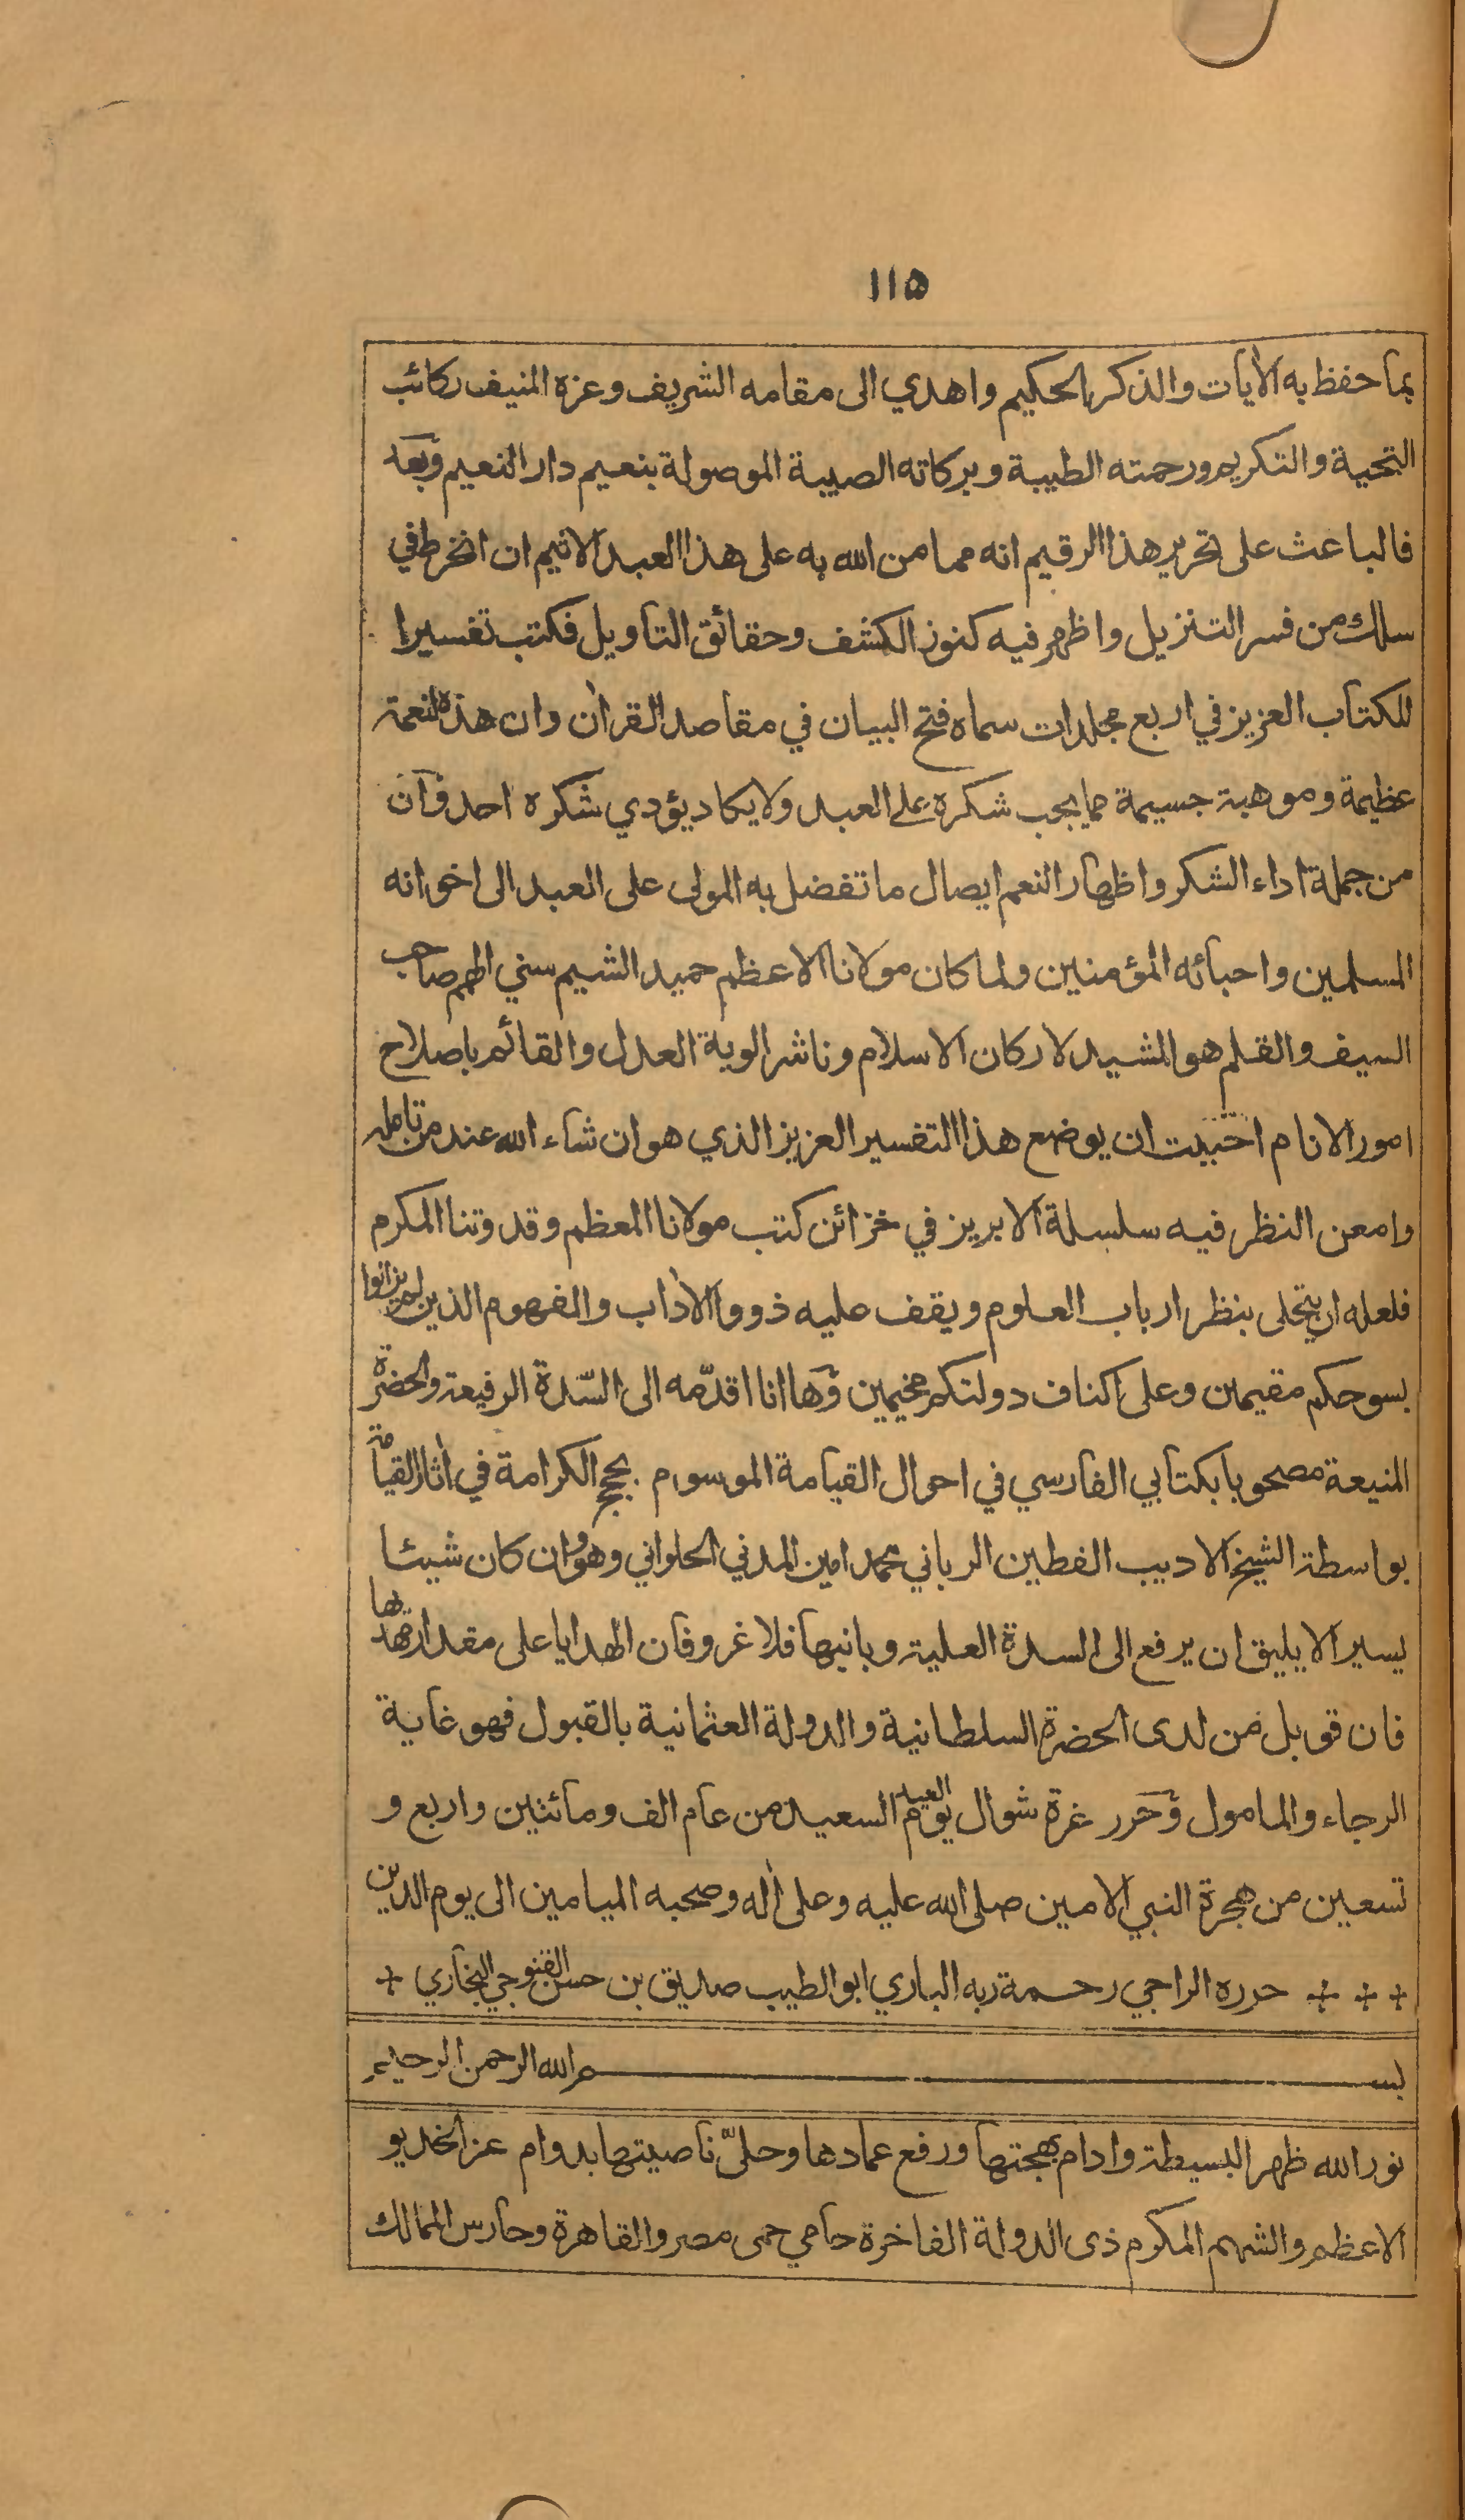 ١١٥
بما حفظ به الأيات والذكر الحكيم واهدي الى مقامه الشريف وعزه المنيف ركائب
التحية والتكريم ورحمته الطيبة وبركاته الصيبة الموصولة بنعيم دار النعيم وبعد
فالباعث على تحرير هذا الرقيم انه مما من الله به على هذا العبد الاثيم ان انخرط في
سلك من فسر التنزيل واظهر فيه كنوز الكشف وحقائق التأويل فكتب تفسيرا
للكتاب العزيز في اربع مجلدات سماه فتح البيان في مقاصد القرأن وان هذه النعمة
عظيمة وموهبة جسيمة مما يجب شكره على العبد ولا يكاد يؤدي شكره احد وان
من جملة اداء الشكر واظهار النعم ايصال ما تفضل به المولى على العبد الى اخوانه
المسلمين واحبائه المؤمنين ولما كان مولانا الاعظم حميد الشيم سني الهمم صاحب
السيف والقلم هو المشيد لاركان الاسلام وناشر الوية العدل والقائم باصلاح
امور الانام احببت ان يوضع هذا التفسير العزيز الذي هو ان شاء الله عند من تامله
وامعن النظر فيه سلسلة الابريز في خزائن كتب مولانا المعظم وقدوتنا المكرم
فلعله ان يتحلى بنظر ارباب العلوم ويقف عليه ذووا الأداب والفهوم الذين لم يزالوا
بسوحكم مقيمين وعلى اكناف دولتكم مخيمين وها انا اقدّمه الى السّدة الرفيعة والحضرة
المنيعة مصحوبا بكتابي الفارسي في احوال القيامة الموسوم بحجج الكرامة في أثار القيامة
بواسطة الشيخ الاديب الفطين الرباني محمد امين المدني الحلواني وهو وان كان شيئا
يسيرا لا يليق ان يرفع الى السدة العلية وبانيها فلا غرو فان الهدايا على مقدار مهديها
فان قوبل من لدى الحضرة السلطانية والدولة العثمانية بالقبول فهو غاية
الرجاء والمامول وحرر غرة شوال يوم العيد السعيد من عام الف ومائتين واربع و
تسعين من هجرة النبي الامين صلى الله عليه وعلى أله وصحبه الميامين الى يوم الدين
حرره الراجي رحمة ربه الباري ابو الطيب صديق بن حسن القنوجي البخاري
بسم الله الرحمن الرحيم
نور الله ظهر البسيطة وادام بهجتها ورفع عمادها وحلىّ ناصيتها بدوام عز الخديو
الاعظم والشهم المكرم ذى الدولة الفاخرة حامي حمى مصر والقاهرة وحارس الممالك